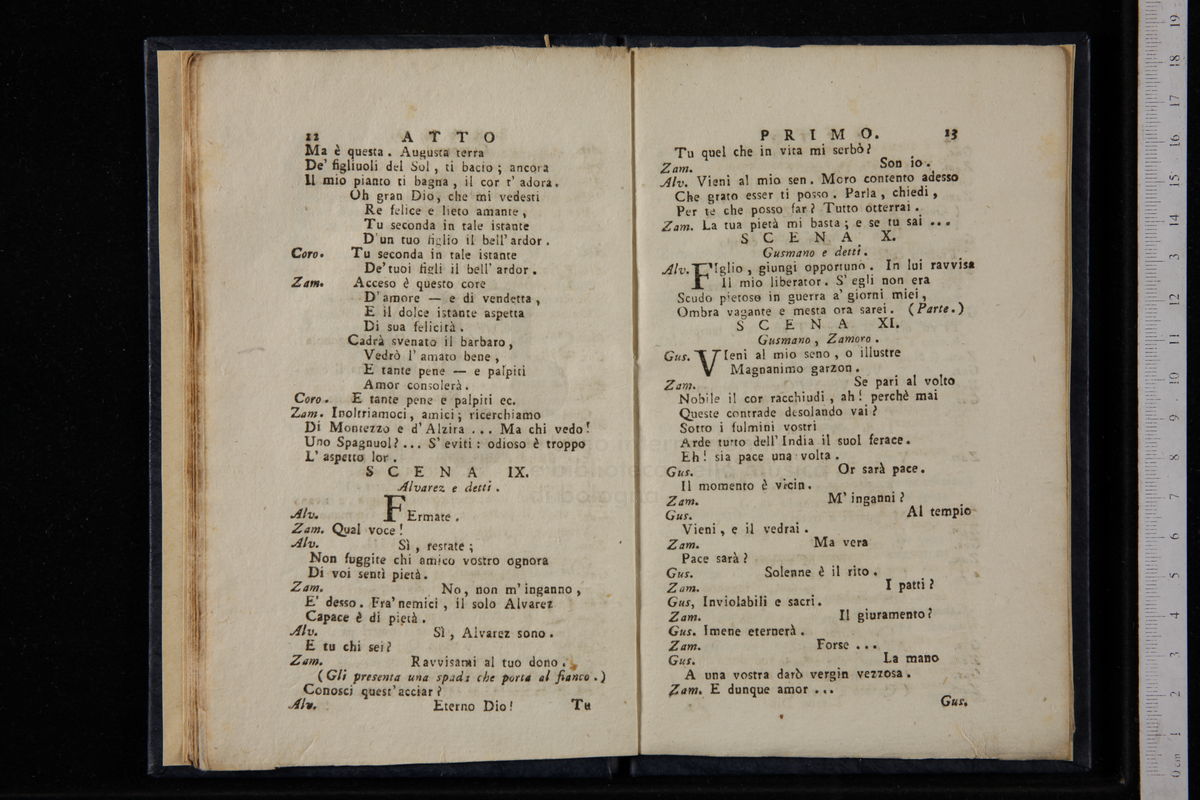 12 ATTO
Ma è questa. Augusta terra
De' figliuoli del Sol, ti bacio; ancora
Il mio pianto ti bagna, il cor t' adora.
Oh gran Dio, che mi vedesti
Re felice e lieto amante,
Tu seconda in tale istante
D'un tuo figlio il bell' ardor.
Coro. Tu seconda in tale istante
De' tuoi figli il bell' ardor.
Zam. Acceso è questo core
D' amore — e di vendetta,
E il dolce istante aspetta
Di sua felicità.
Cadrà svenato il barbaro,
Vedrò l' amato bene,
E tante pene — e palpiti
Amor consolerà.
Coro. E tante pene e palpiti ec.
Zam. Inoltriamoci, amici; ricerchiamo
Di Montezzo e d' Alzira ... Ma chi vedo!
Uno Spagnuol? ... S' eviti: odioso è troppo
L' aspetto lor.
SCENA IX.
Alvarez e detti.
Alv. FErmate.
Zam. Qual voce!
Alv. Sì, restate;
Non fuggite chi amico vostro ognora
Di voi sentì pietà.
Zam. No, non m' inganno,
E' desso. Fra' nemici, il solo Alvarez
Capace è di pietà.
Alv. Sì, Alvarez sono.
E tu chi sei?
Zam. Ravvisami al tuo dono.
(Gli presenta una spada che porta al fianco.)
Conosci quest' acciar?
Alv. Eterno Dio!
Tu
PRIMO. 13
Tu quel che in vita mi serbò?
Zam. Son io.
Alv. Vieni al mio sen. Moro contento adesso
Che grato esser ti posso. Parla, chiedi,
Per te che posso far? Tutto otterrai.
Zam. La tua pietà mi basta; e se tu sai ...
SCENA X.
Gusmano e detti.
Alv. FIglio, giungi opportuno. In lui ravvisa
Il mio liberator. S' egli non era
Scudo pietoso in guerra a' giorni miei,
Ombra vagante e mesta ora sarei. (Parte.)
SCENA XI.
Gusmano, Zamoro.
Gus. VIeni al mio seno, o illustre
Magnanimo garzon.
Zam. Se pari al volto
Nobile il cor racchiudi, ah! perchè mai
Queste contrade desolando vai?
Sotto i fulmini vostri
Arde tutto dell' India il suol ferace.
Eh! sia pace una volta.
Gus. Or sarà pace.
Il momento è vicin.
Zam. M' inganni?
Gus. Al tempio
Vieni, e il vedrai.
Zam. Ma vera
Pace sarà?
Gus. Solenne è il rito.
Zam. I patti?
Gus, Inviolabili e sacri.
Zam. Il giuramento?
Gus. Imene eternerà.
Zam. Forse ...
Gus. La mano
A una vostra darò vergin vezzosa.
Zam. E dunque amor ...
Gus.